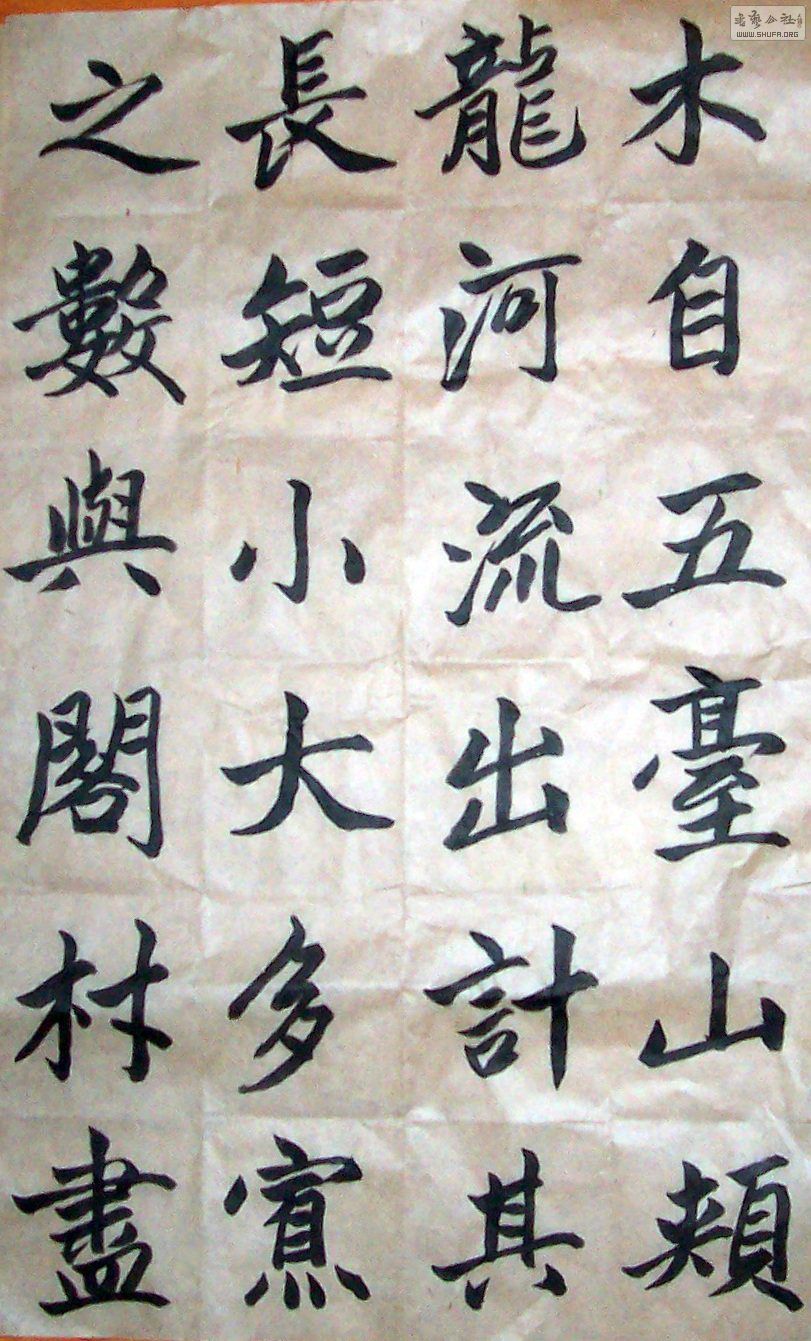 木自五臺山頰
龍河流出計其
長短小大多寡
之數與閣村盡
WWW.SHUFA.ORG